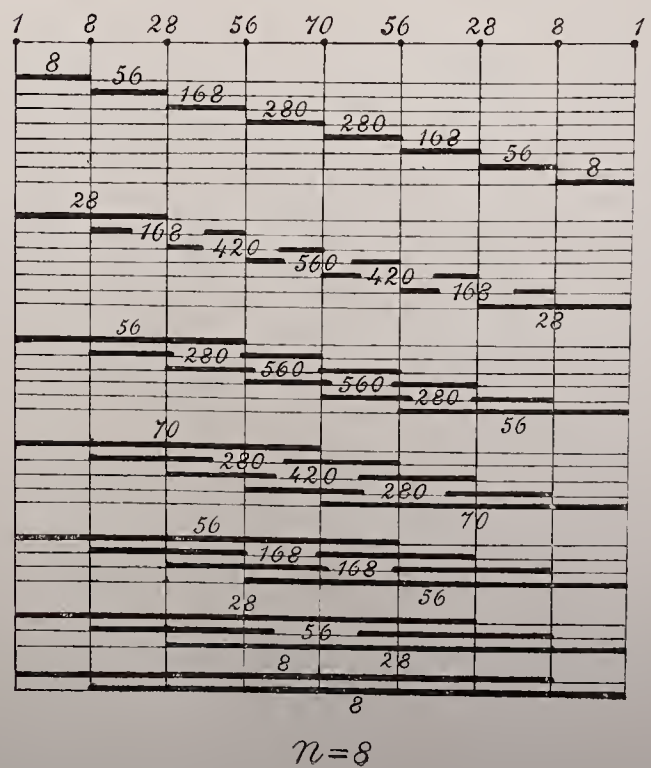 1 8 28 56 70 56 28 8 1
8
56
168
280
280
168
56
8
28
168
420
560
420
168
28
56
280
560
560
280
56
70
280
420
280
70
56
168
168
56
28
56
28
8
8
n=8